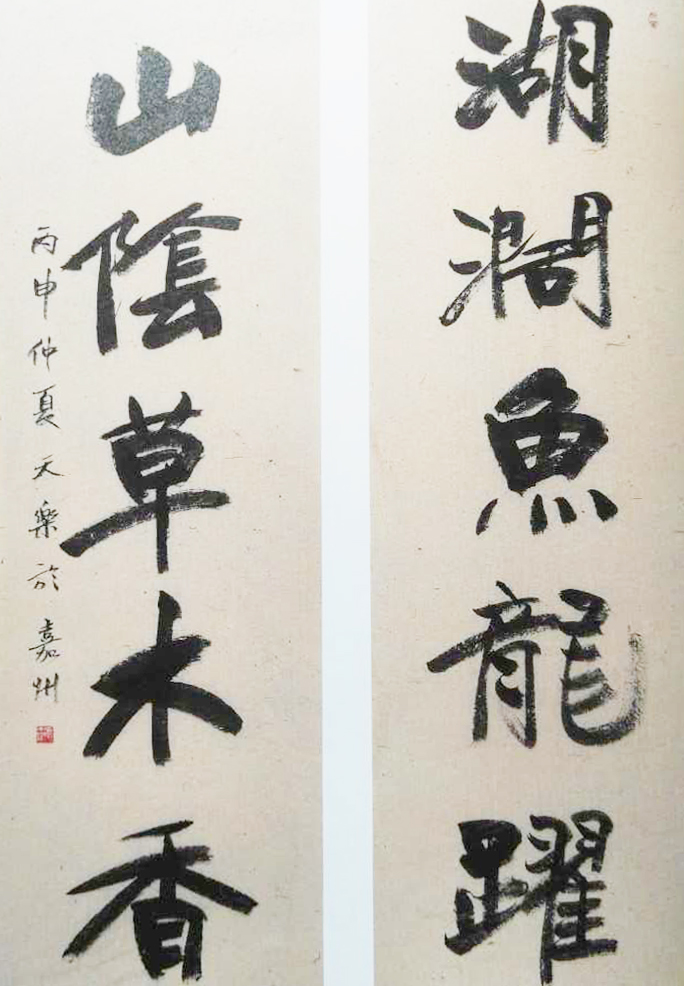 湖濶魚龍躍
山陰草木香
丙申仲夏天樂於嘉州